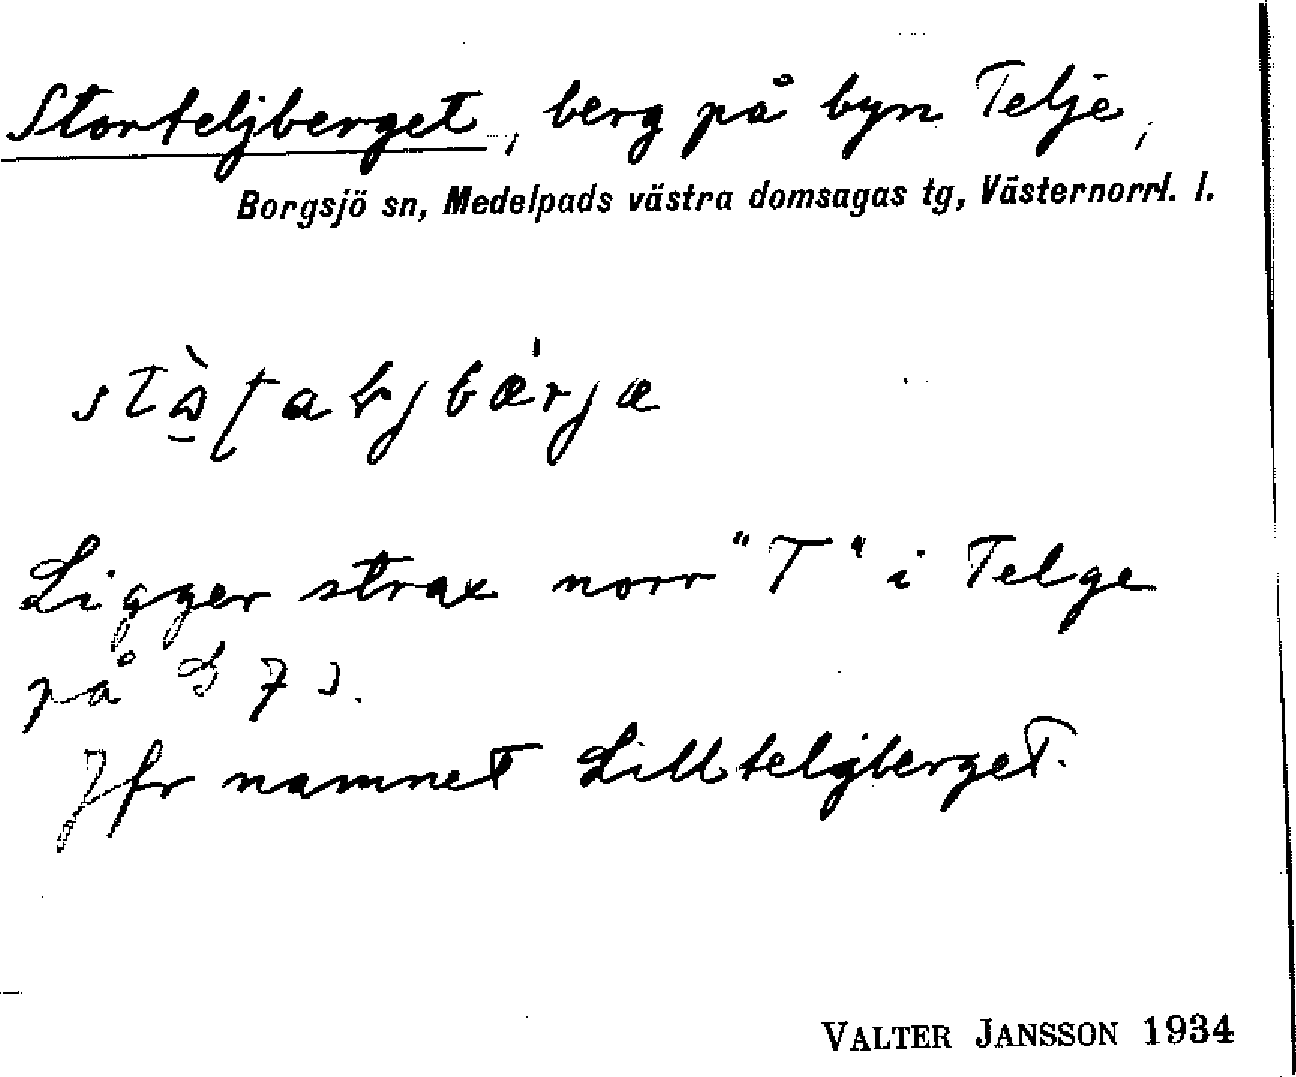 Storteljberget, berg på byn Telje,
Borgsjö sn, Medelpads västra domsagas tg, Västernorrl. l.
Ligger strax norr "T" i Telge
på G 7 J.
Jfr namnet Lillteljberget.
VALTER JANSSON 1934